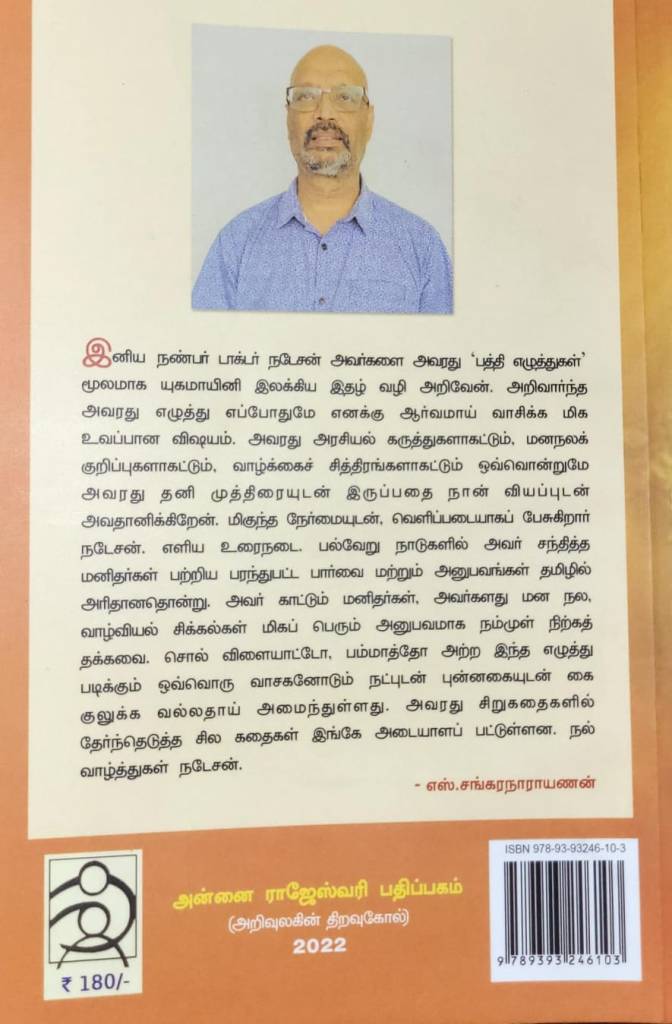 இனிய நண்பர் டாக்டர் நடேசன் அவர்களை அவரது 'பத்தி எழுத்துகள்'
மூலமாக யுகமாயினி இலக்கிய இதழ் வழி அறிவேன். அறிவார்ந்த
அவரது எழுத்து எப்போதுமே எனக்கு ஆர்வமாய் வாசிக்க மிக
உவப்பான விஷயம். அவரது அரசியல் கருத்துகளாகட்டும், மனநலக்
குறிப்புகளாகட்டும், வாழ்க்கைச் சித்திரங்களாகட்டும் ஒவ்வொன்றுமே
அவரது தனி முத்திரையுடன் இருப்பதை நான் வியப்புடன்
அவதானிக்கிறேன். மிகுந்த நேர்மையுடன், வெளிப்படையாகப் பேசுகிறார்
நடேசன். எளிய உரைநடை. பல்வேறு நாடுகளில் அவர் சந்தித்த
மனிதர்கள் பற்றிய பரந்துபட்ட பார்வை மற்றும் அனுபவங்கள் தமிழில்
அரிதானதொன்று. அவர் காட்டும் மனிதர்கள், அவர்களது மன நல,
வாழ்வியல் சிக்கல்கள் மிகப் பெரும் அனுபவமாக நம்முள் நிற்கத்
தக்கவை. சொல் விளையாட்டோ, பம்மாத்தோ அற்ற இந்த எழுத்து
படிக்கும் ஒவ்வொரு வாசகனோடும் நட்புடன் புன்னகையுடன் கை
குலுக்க வல்லதாய் அமைந்துள்ளது. அவரது சிறுகதைகளில்
தேர்ந்தெடுத்த சில கதைகள் இங்கே அடையாளப் பட்டுள்ளன. நல்
வாழ்த்துகள் நடேசன்.
- எஸ்.சங்கரநாராயணன்
அன்னை ராஜேஸ்வரி பதிப்பகம்
(அறிவுலகின் திறவுகோல்)
2022
₹ 180/-
ISBN 978-93-93246-10-3
9 789393 246103